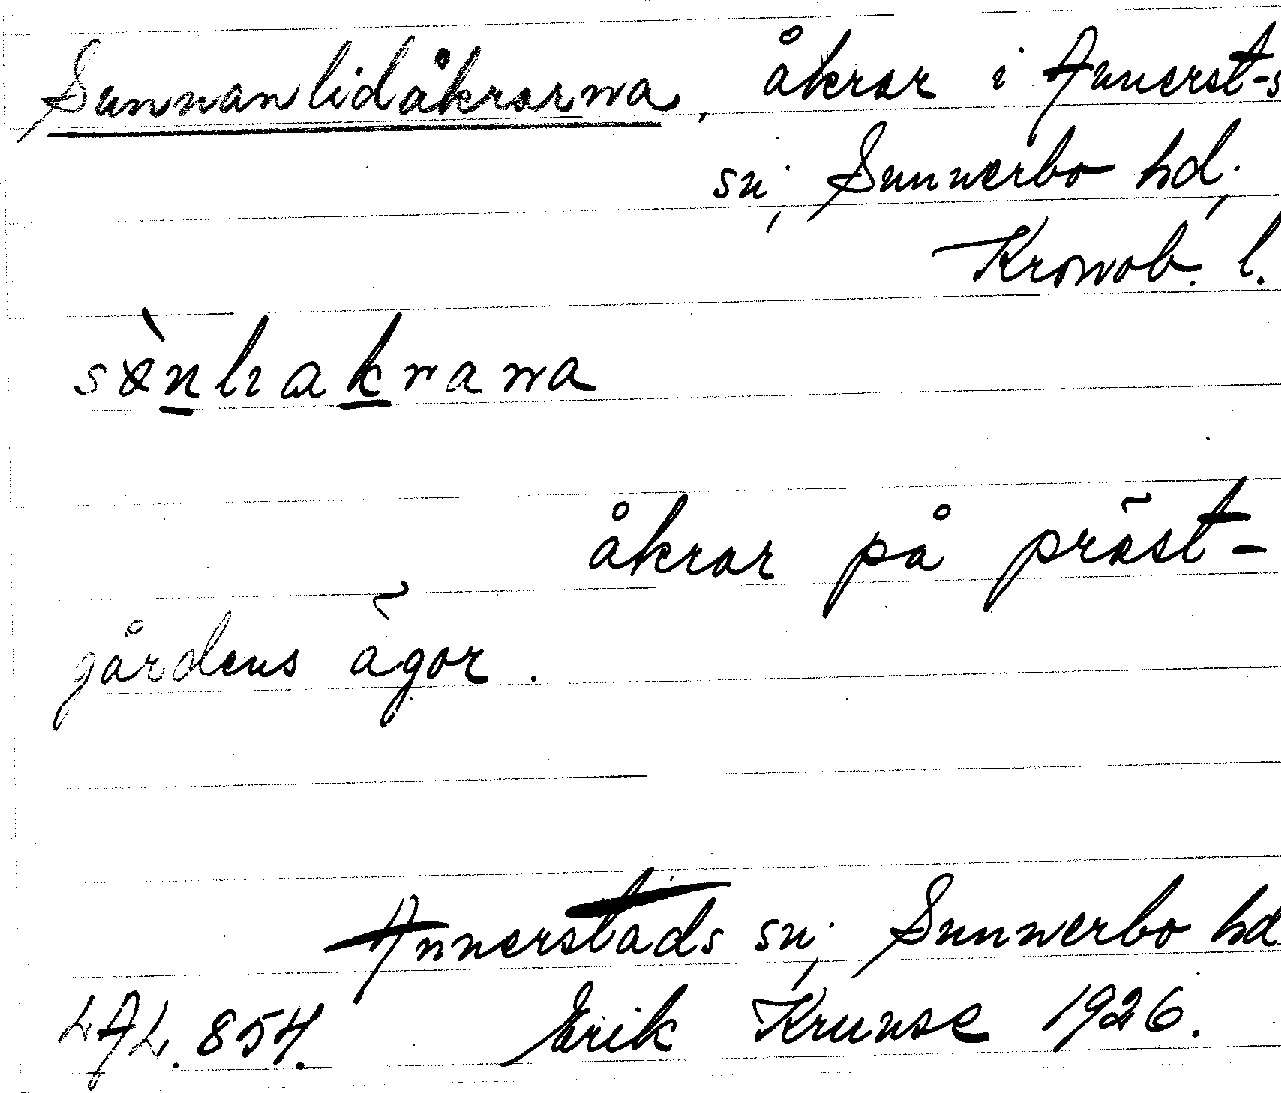 Sunnanlidåkrarna, åkrar i Annerst-s
sn, Sunnerbo hd,
Kronob. l.
åkrar på präst-
gårdens ägor.
Annerstads sn, Sunnerbo hd
LAL. 854. Erik Krunse 1926.